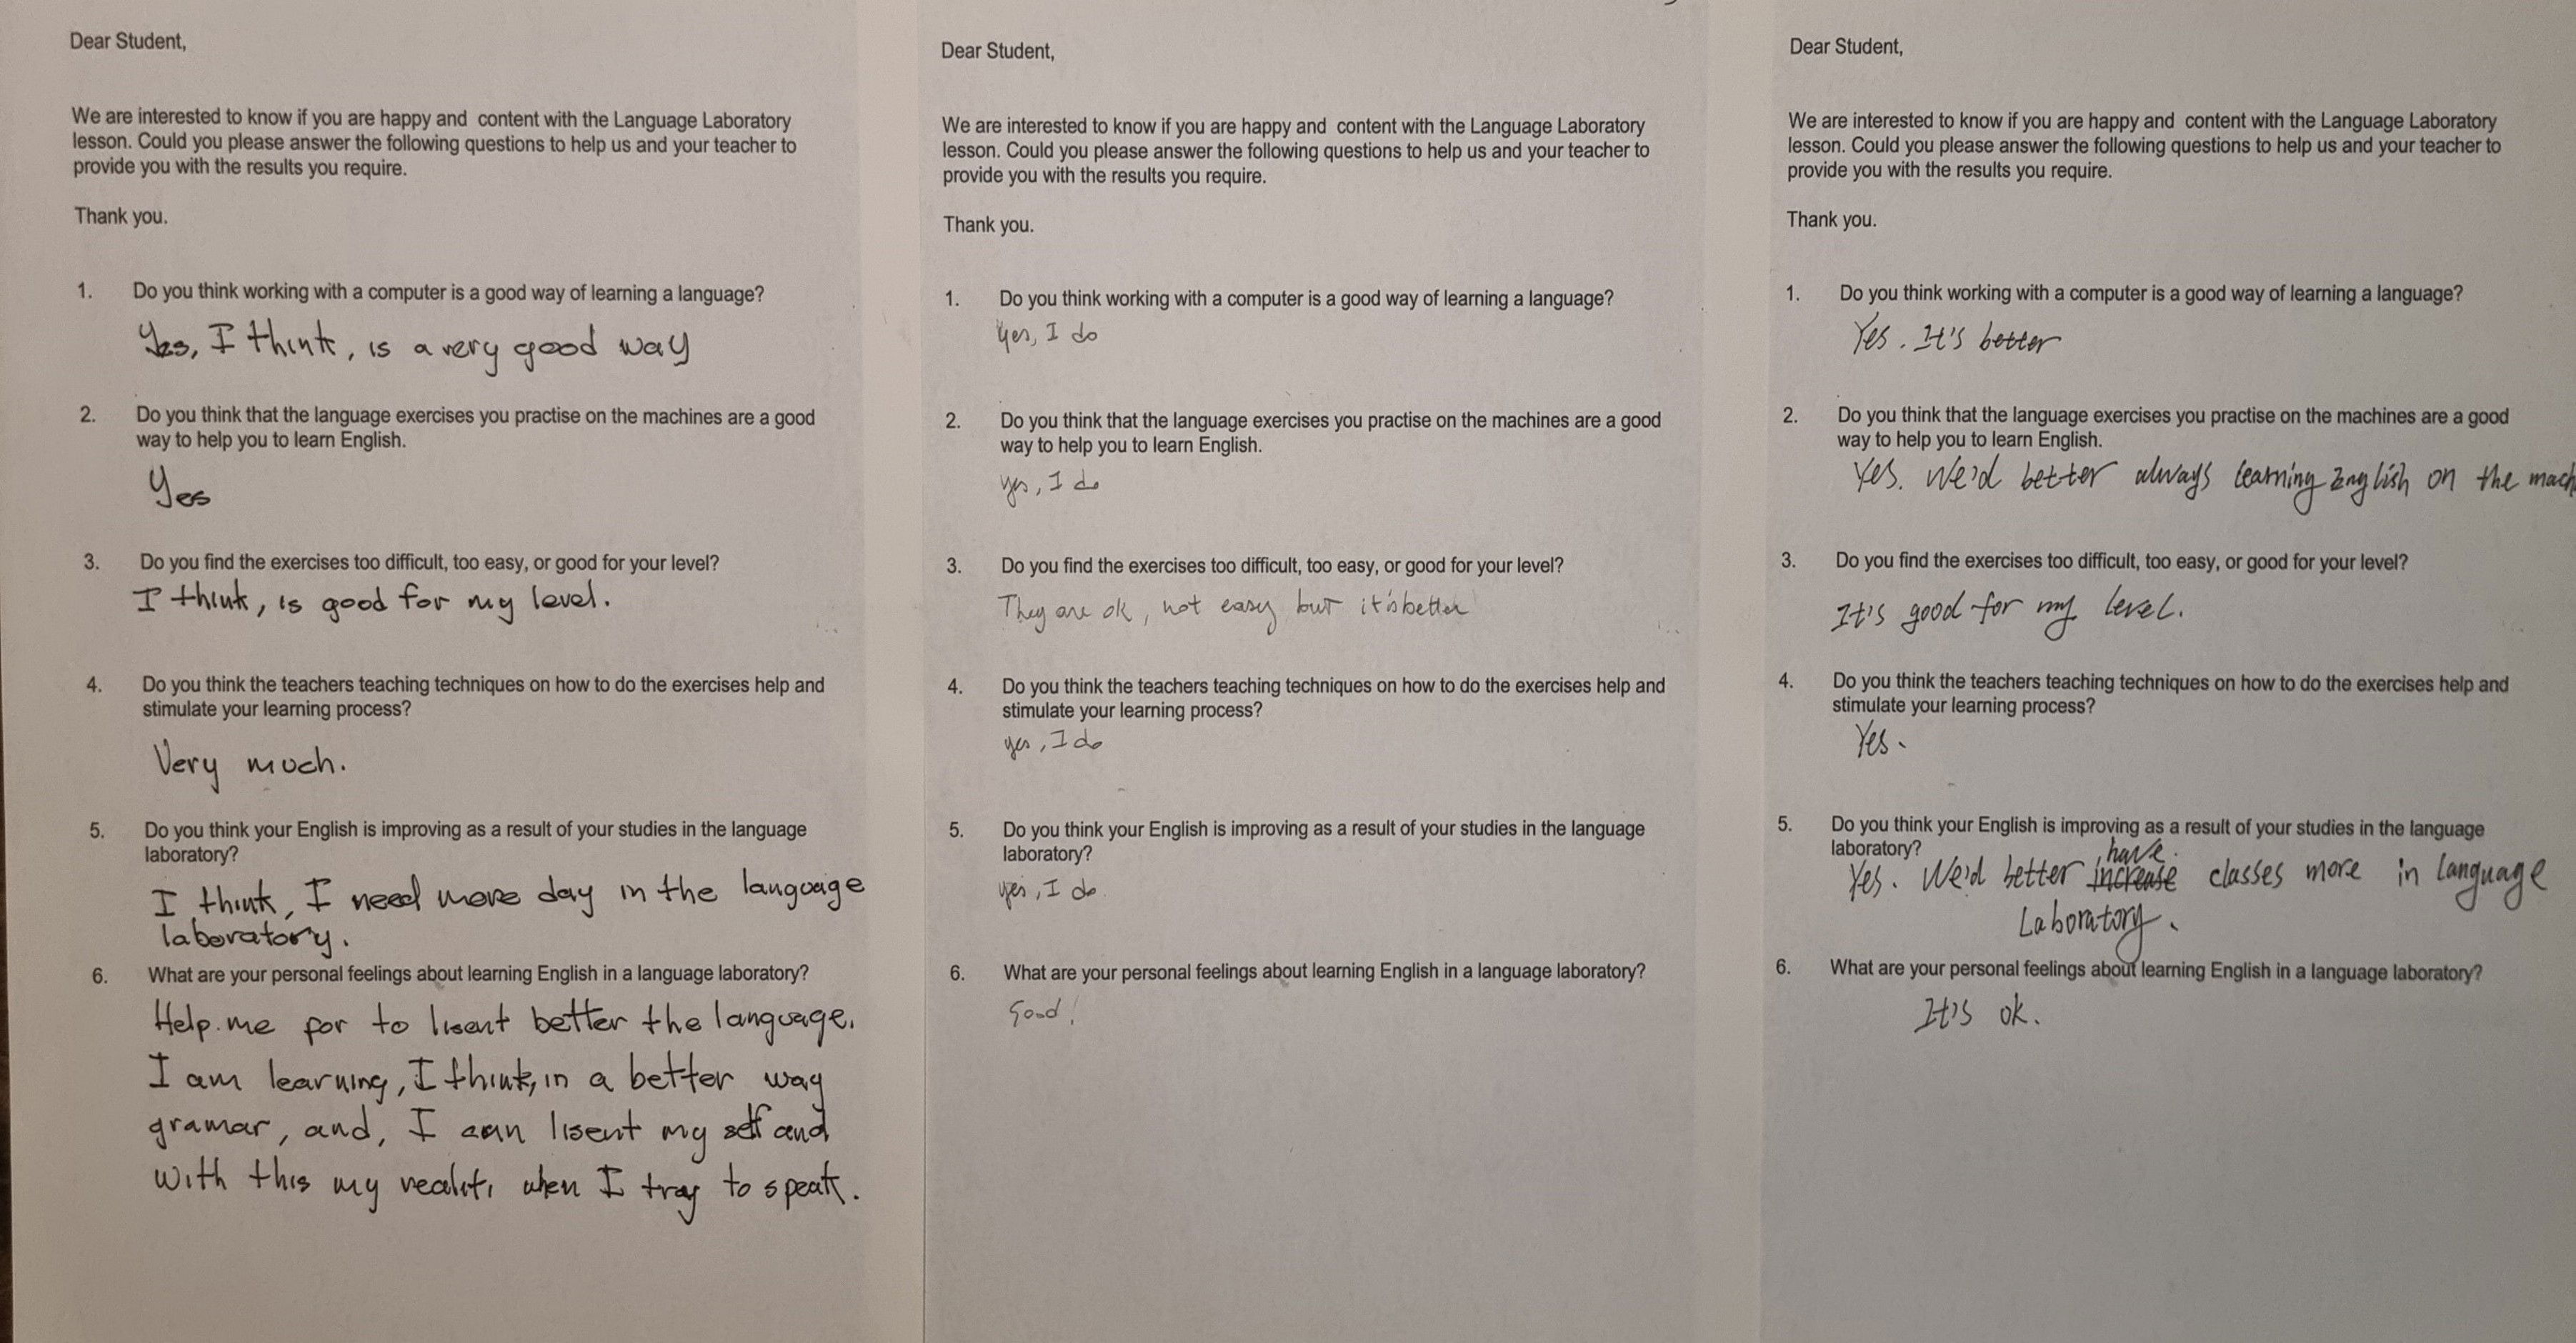 Dear Student,
We are interested to know if you are happy and content with the Language Laboratory
lesson. Could you please answer the following questions to help us and your teacher to
provide you with the results you require.
Thank you.
1. Do you think working with a computer is a good way of learning a language?
Yes, I think, is a very good way
2. Do you think that the language exercises you practise on the machines are a good
way to help you to learn English.
Yes
3. Do you find the exercises too difficult, too easy, or good for your level?
I think, is good for my level.
4. Do you think the teachers teaching techniques on how to do the exercises help and
stimulate your learning process?
Very much.
5. Do you think your English is improving as a result of your studies in the language
laboratory?
I think, I need more day in the language
laboratory.
6. What are your personal feelings about learning English in a language laboratory?
Help me por to lisent better the language.
I am learning, I think, in a better way
gramar, and, I can lisent my self and
with this my realiti when I tray to speak.
Dear Student,
We are interested to know if you are happy and content with the Language Laboratory
lesson. Could you please answer the following questions to help us and your teacher to
provide you with the results you require.
Thank you.
1. Do you think working with a computer is a good way of learning a language?
Yes, I do
2. Do you think that the language exercises you practise on the machines are a good
way to help you to learn English.
yes, I do
3. Do you find the exercises too difficult, too easy, or good for your level?
They are ok, not easy but it's better
4. Do you think the teachers teaching techniques on how to do the exercises help and
stimulate your learning process?
yes, I do
5. Do you think your English is improving as a result of your studies in the language
laboratory?
yes, I do
6. What are your personal feelings about learning English in a language laboratory?
Good!
Dear Student,
We are interested to know if you are happy and content with the Language Laboratory
lesson. Could you please answer the following questions to help us and your teacher to
provide you with the results you require.
Thank you.
1. Do you think working with a computer is a good way of learning a language?
Yes. It's better
2. Do you think that the language exercises you practise on the machines are a good
way to help you to learn English.
Yes. We'd better always learning English on the mach
3. Do you find the exercises too difficult, too easy, or good for your level?
It's good for my level.
4. Do you think the teachers teaching techniques on how to do the exercises help and
stimulate your learning process?
Yes.
5. Do you think your English is improving as a result of your studies in the language
laboratory?
have
Yes. We'd better increase classes more in language
Laboratory.
6. What are your personal feelings about learning English in a language laboratory?
It's ok.